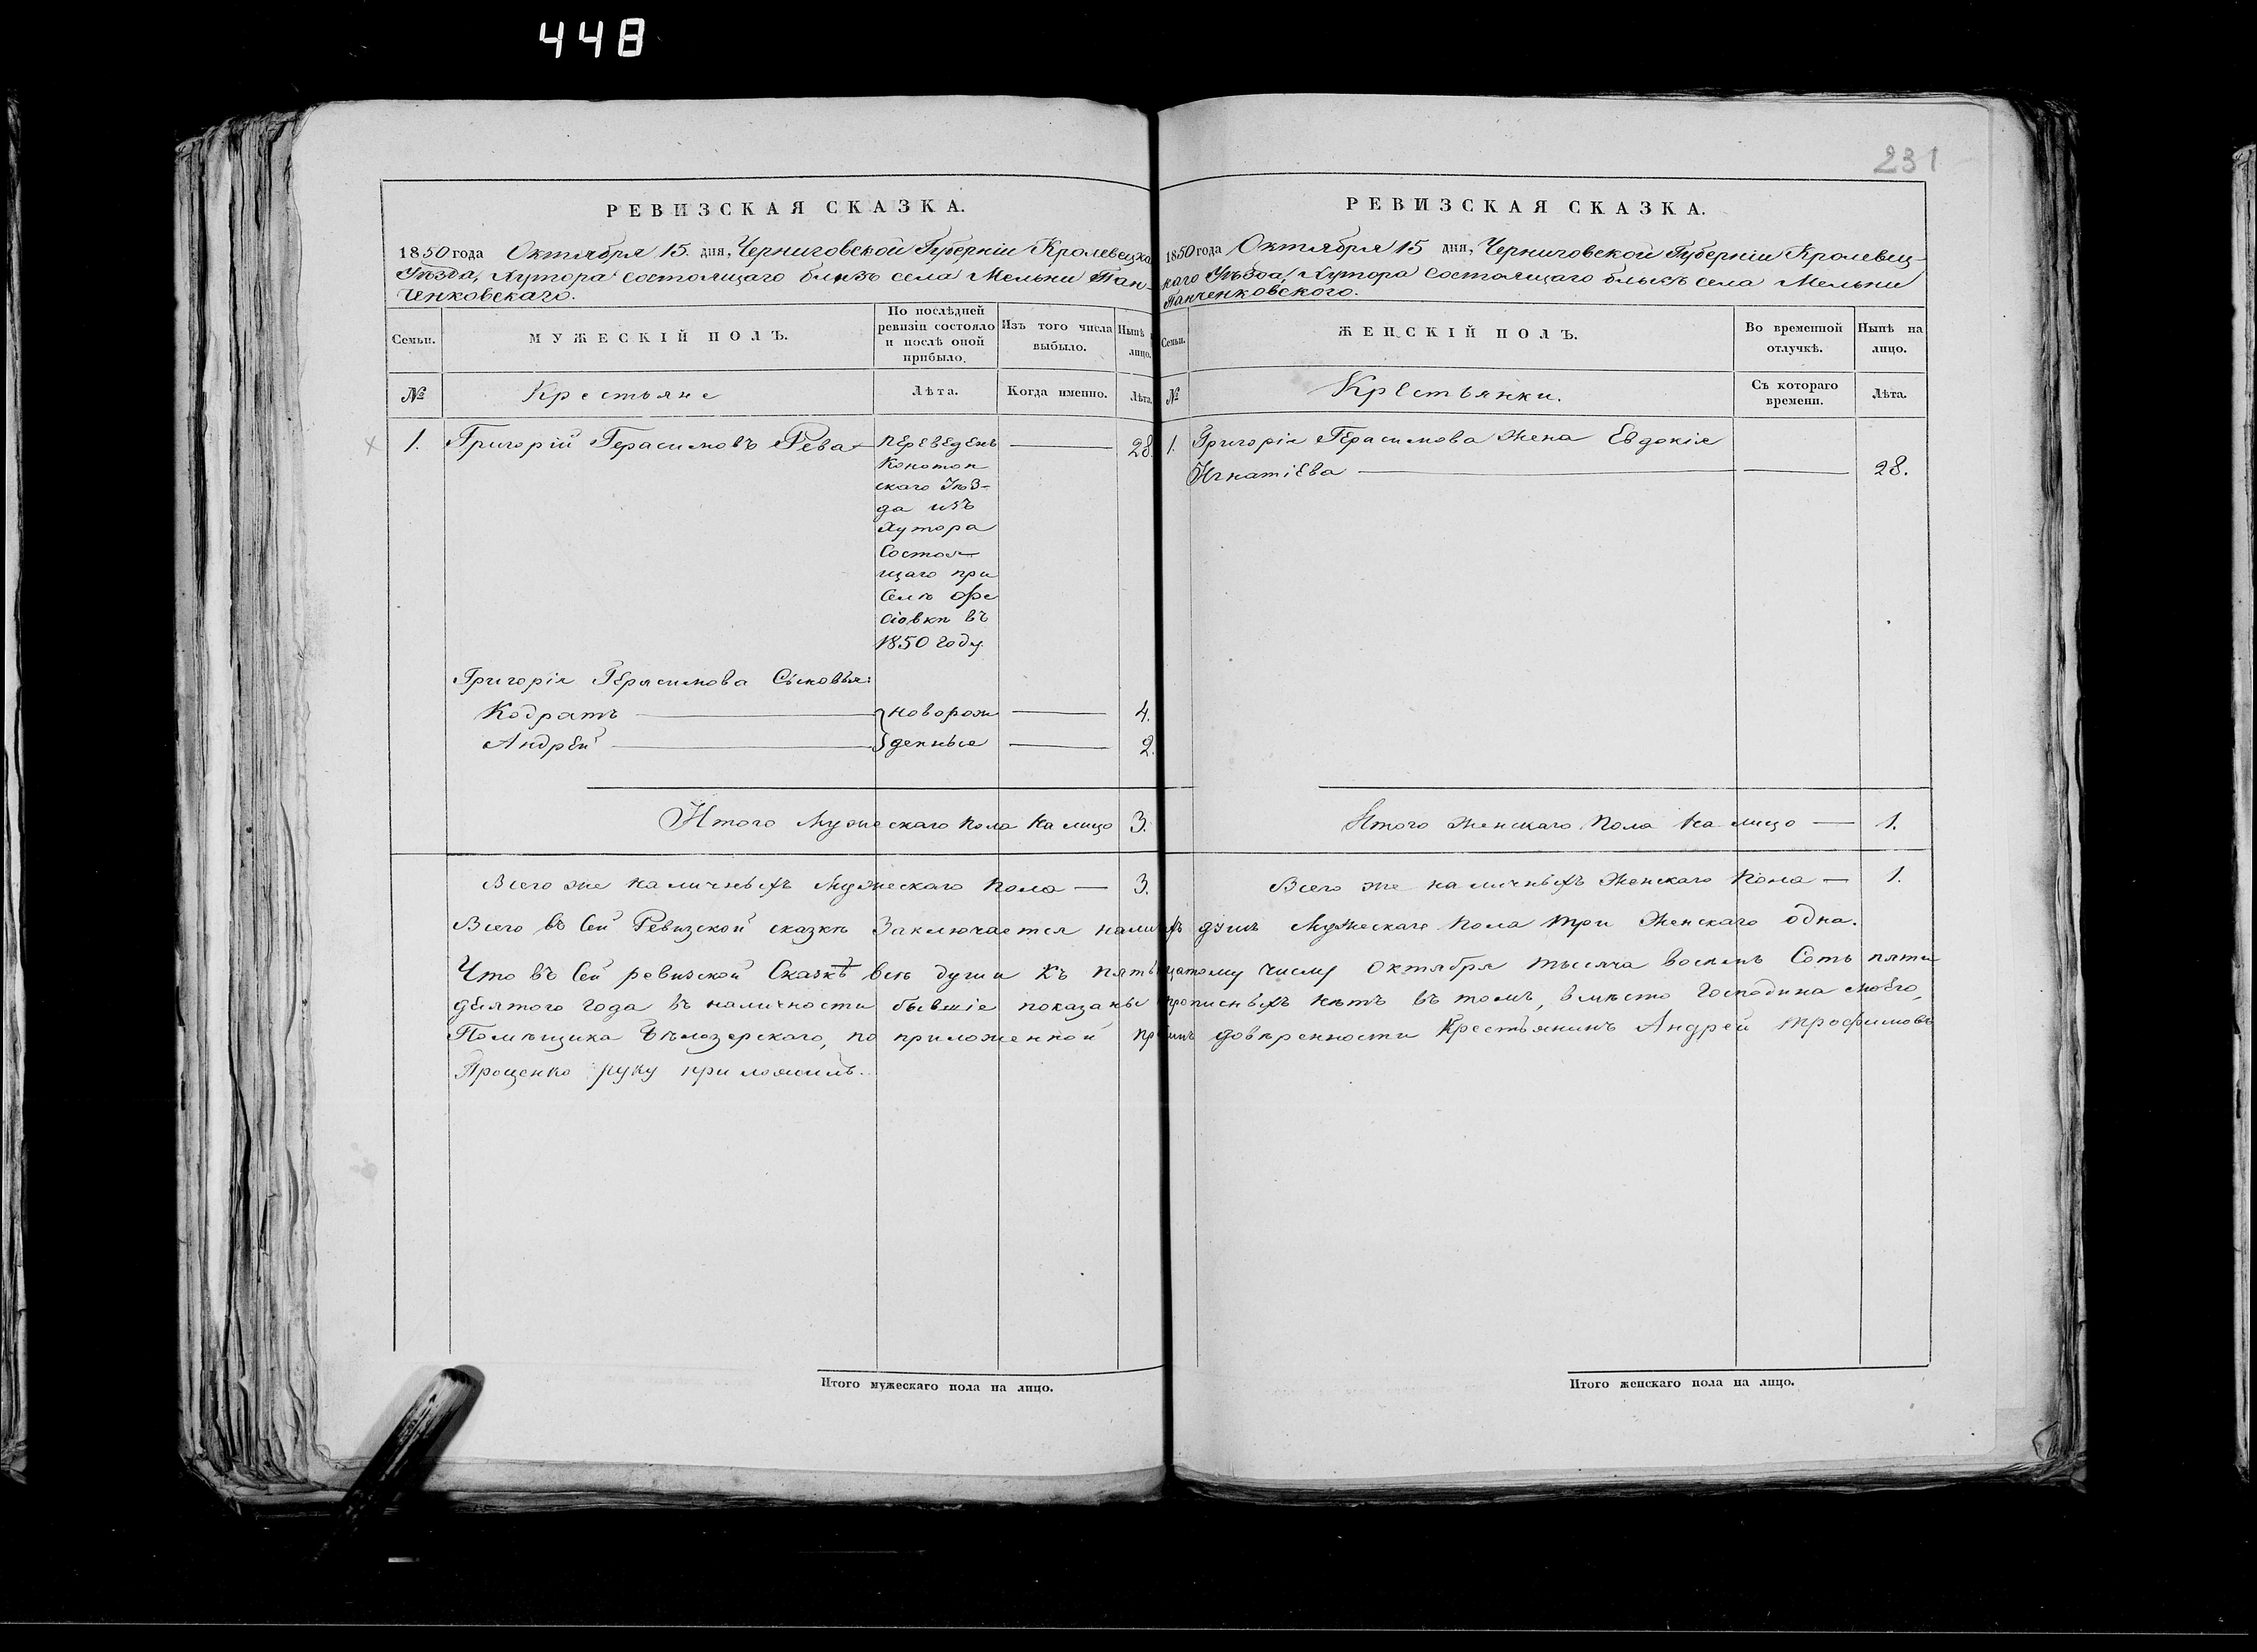 448
231
РЕВИЗСКАЯ СКАЗКА.
1850 года Октября 15. дня, Черниговской Губерніи Кролевецка
Уѣзда, Хутора состоящаго близъ села Мельни Пан-
ченковскаго.
Семьи.
МУЖЕСКІЙ ПОЛЪ.
По послѣдней
ревизіи состояло
и послѣ оной
прибыло.
Изъ того числа
выбыло.
Нынѣ
лицо.
№
Крестьяне
Лѣта.
Когда именно.
Лѣта.
1. Григорій Герасимовъ Рева переведенъ 28.
Конотоп
скаго Уѣз-
да изъ
Хутора
Состоя-
щаго при
Селѣ
въ
1850 году
Григорія Герасимова Сыновья:
Кодратъ новорож 4.
Андрей денные 2.
Итого Мужескаго пола на лицо 3.
Всего же наличныхъ Мужескаго пола — 3.
РЕВИЗСКАЯ СКАЗКА.
1850 года Октября 15 дня, Черниговской Губерніи Кролевец-
каго Уѣзда, Хутора состоящаго блызъ села Мельни
Панченковского.
Семьи.
ЖЕНСКІЙ ПОЛЪ.
Во временной
отлучкѣ.
Нынѣ на
лицо.
№
Крестьянки.
Съ котораго
времени.
Лѣта.
1. Григорія Герасимова жена Евдокія
Игнатіева 28.
Итого женскаго пола на лицо — 1.
Всего же наличныхъ Женскаго пола — 1.
Всего въ Сей Ревизской сказкѣ Заключается душъ Мужескаго пола три Женскаго одна.
Что въ Сей ревизской Сказкѣ всѣ души къ числу Октября тысяча восемь Сотъ пяти
десятого года въ наличности бывшіе показаны прописныхъ нѣтъ въ томъ, вмѣсто Господина моего,
Помѣщика Бѣлозерскаго, по приложенной довѣренности Крестьянинъ Андрей Трофимовъ
Проценко руку приложилъ.
Итого мужескаго пола на лицо.
Итого женскаго пола на лицо.